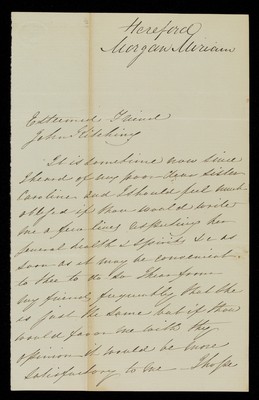 Hereford
Morgan Miriam
Esteemed Friend
John Kitching
It is sometime now since
I heard of my poor dear sister
Caroline and I should feel much
obliged if thou would write
me a few lines respecting her
general health & spirits &c as
soon as it may be convenient
to thee to do so I hear from
my friends frequently that she
is just the same but if thou
would favor me with thy
opinion it would be more
satisfactory to me I hope